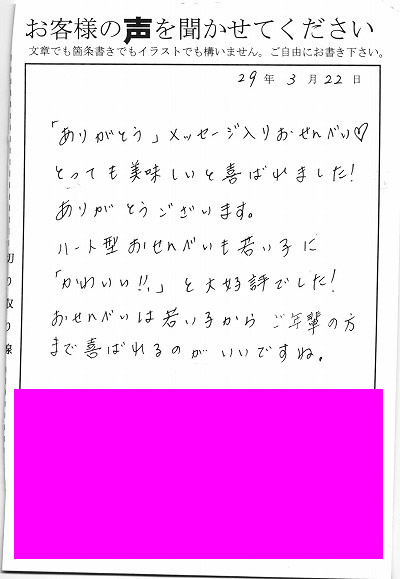 お客様の声を聞かせてください
文章でも箇条書きでもイラストでも構いません。ご自由にお書き下さい。
29年 3月 22日
「ありがとう」メッセージ入りおせんべい♡
とっても美味しいと喜ばれました!
ありがとうございます。
ハート型おせんべいも若い子に
「かわいい!!」と大好評でした!
おせんべいは若い子からご年輩の方
まで喜ばれるのがいいですね。
切り取り線